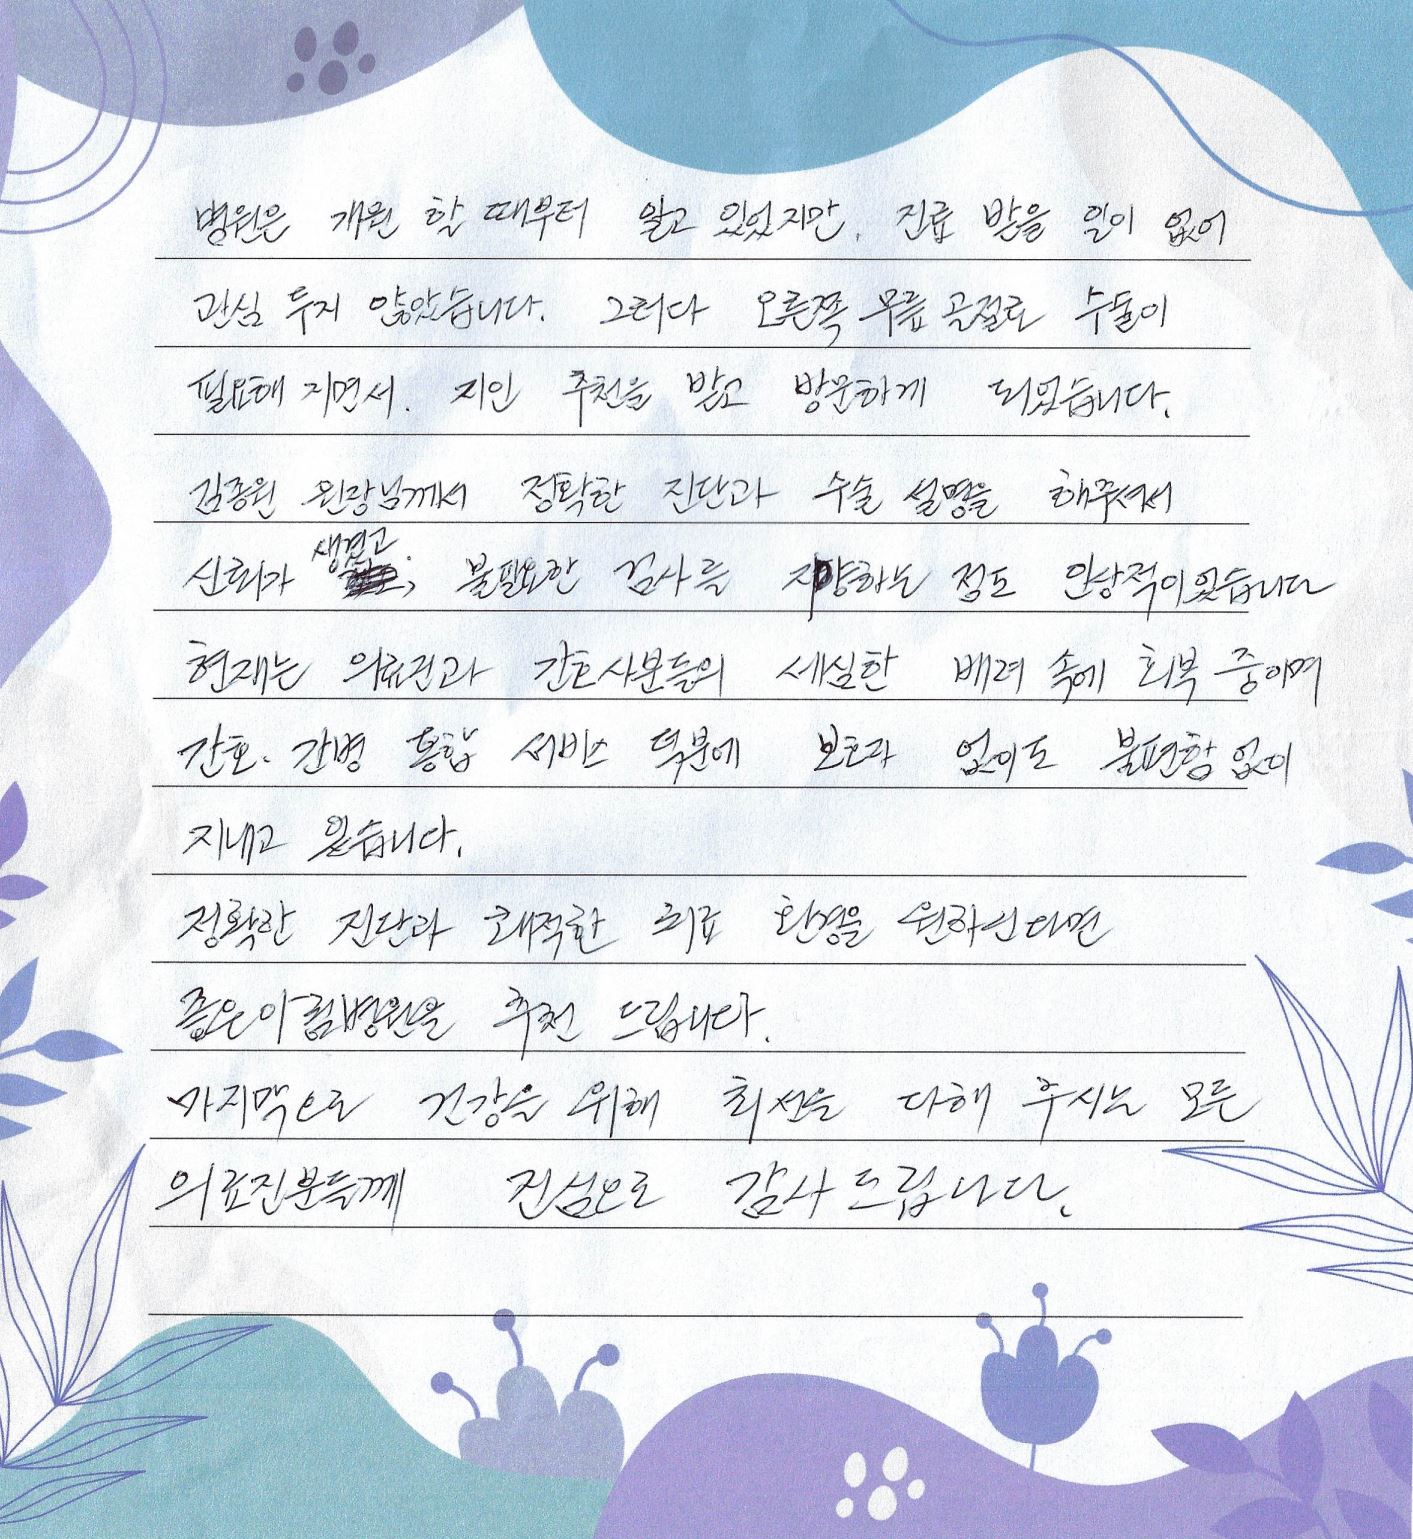 병원은 개원 할 때부터 알고 있었지만, 진료 받을 일이 없어
관심 두지 않았습니다. 그러다 오른쪽 무릎 골절로 수술이
필요해 지면서. 지인 추천을 받고 방문하게 되었습니다.
김종원 원장님께서 정확한 진단과 수술 설명을 해주셔서
신뢰가 생겼고, 불필요한 검사를 지양하는 점도 인상적이었습니다
현재는 의료진과 간호사분들의 세심한 배려 속에 회복 중이며
간호·간병 통합 서비스 덕분에 보호자 없이도 불편함 없이
지내고 있습니다.
정확한 진단과 쾌적한 치료 환경을 원하신다면
좋은아침병원을 추천 드립니다.
마지막으로 건강을 위해 최선을 다해 주시는 모든
의료진분들께 진심으로 감사드립니다.